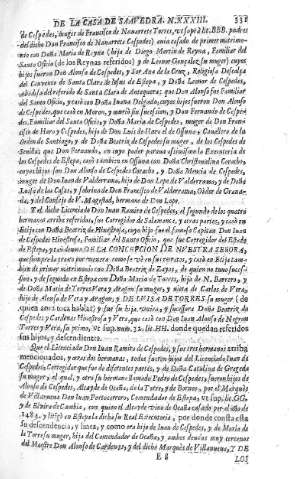 DE LA CASA DE SAAVEDRA. N.XXXIII. 331
de Cespedes, muger de Francisco de Navarrete Torres, ut supr. lit. BBB. padres
del dicho Don Francisco de Navarrete Cespedes) està casado de primer matrimo-
nio con Doña Maria de Reyna (hija de Diego Martin de Reyna, Familiar del
Santo Oficio (de los Reynas referidos) y de Leonor Gonzalez, su muger) cuyos
hijos fueron Don Alonso de Cespedes, y Sor Ana de la Cruz, Religiosa Descalça
del Convento de Santa Clara de de Estepa, y Doña Leonor de Cespedes,
del de Santa Clara de Antequera; que Don Alonso fue Familiar
del Santo Oficio, y casò con Doña Juana Delgado, cuyos hijos fueron Don Alonso
de Cespedes, que casò en Moron, y muriò sin sucession, y Don Fernando de Cespedes,
Familiar del Santo Oficio, y Doña Maria de Cespedes, muger de Don Fran-
cisco de Haro y Cespedes, hijo de Don Luis de Haro el de Ossuna, Cavallero de la
Orden de Santiago, y de Doña Beatriz de Cespedes su muger, de los Cespedes de
Sevilla; que Don Fernando, en cuyo poder parava la Executoria de
los Cespedes de Estepa, casò tambien en Ossuna con Doña Christovalina Coracho,
cuyos hijos son Don Alonso de Cespedes Coracho, y Doña Maria de Cespedes,
muger de Don Juan de Valderrama, hijo de Don Lope de Valderrama, y de Doña
Luisa de las Casas, y sobrino de Don Francisco de Valderrama, Oidor de Grana-
da, y del Consejo de V. Magestad, hermano de Don Lope.
Y el dicho Licenciado Don Juan Ramirez de Cespedes, el segundo de los quatro
hermanos arriba referidos, fue Corregidor de Salamanca, y otras partes, y casò en
Estepa con Doña Beatriz de Hinestrosa, cuyo hijo fue el famoso Capitan Don Juan
de Cespedes Hinestrosa, Familiar del Santo Oficio, que fue Corregidor del Estado
de Estepa, y Capitan DE LA CONCEPCION DE NUESTRA SEÑORA,
y casò en Estepa tam-
bien de primer matrimonio con Doña Beatriz de Eapos, de quien no tuvo suces-
sion, y de segundo en Estepa con Doña Maria de Torres, hija de N. Barrero, y
de Doña Maria de Torres Vera y Aragon su muger, y nieta de Carlos de Vera,
hijo de Alonso de Vera y Aragon, y DE LUISA DE TORRES su muger (de
quien aora toca hablar) y fue su hija unica, y sucessora Doña Beatriz de
Cespedes y Cardenas Hinestrosa y Vera, que casò con Don Juan Alonso de Negron
Torres y Vera, su primo, ut sup. num. 32. lit. HH. donde quedan referidos
sus hijos, y descendientes.
Que el Licenciado Don Juan Ramirez de Cespedes, y sus tres hermanos arriba
mencionados, y otras dos hermanas, todos fueron hijos del Licenciado Juan de
Cespedes, Corregidor que fue de diferentes partes, y de Doña Catalina de Gregeda
su muger, el qual, y otro su hermano llamado Pedro de Cespedes, fueron hijos de
Alonso de Cespedes, Alcayde de Ocaña, de la Torre, y de Borros, por el Marquès
de Villanueva Don Juan Portocarrero, Comendador de Estepa, ut sup. lit. GG.
y de Elvira de Cambia, con quien el Alcayde vino de Ocaña casado por el año de
1483. y litigò en Estepa la dicha su Real Executoria, por donde consta esta
su descendencia, y linea, y como era hijo de Juan de Cespedes, y de Maria de
la Torre su muger, hija del Comendador de Ocaña, y ambos deudos muy cercanos
del Maestro Don Alonso de Cardenas, y del dicho Marquès de Villanueva, Y DE
LOS